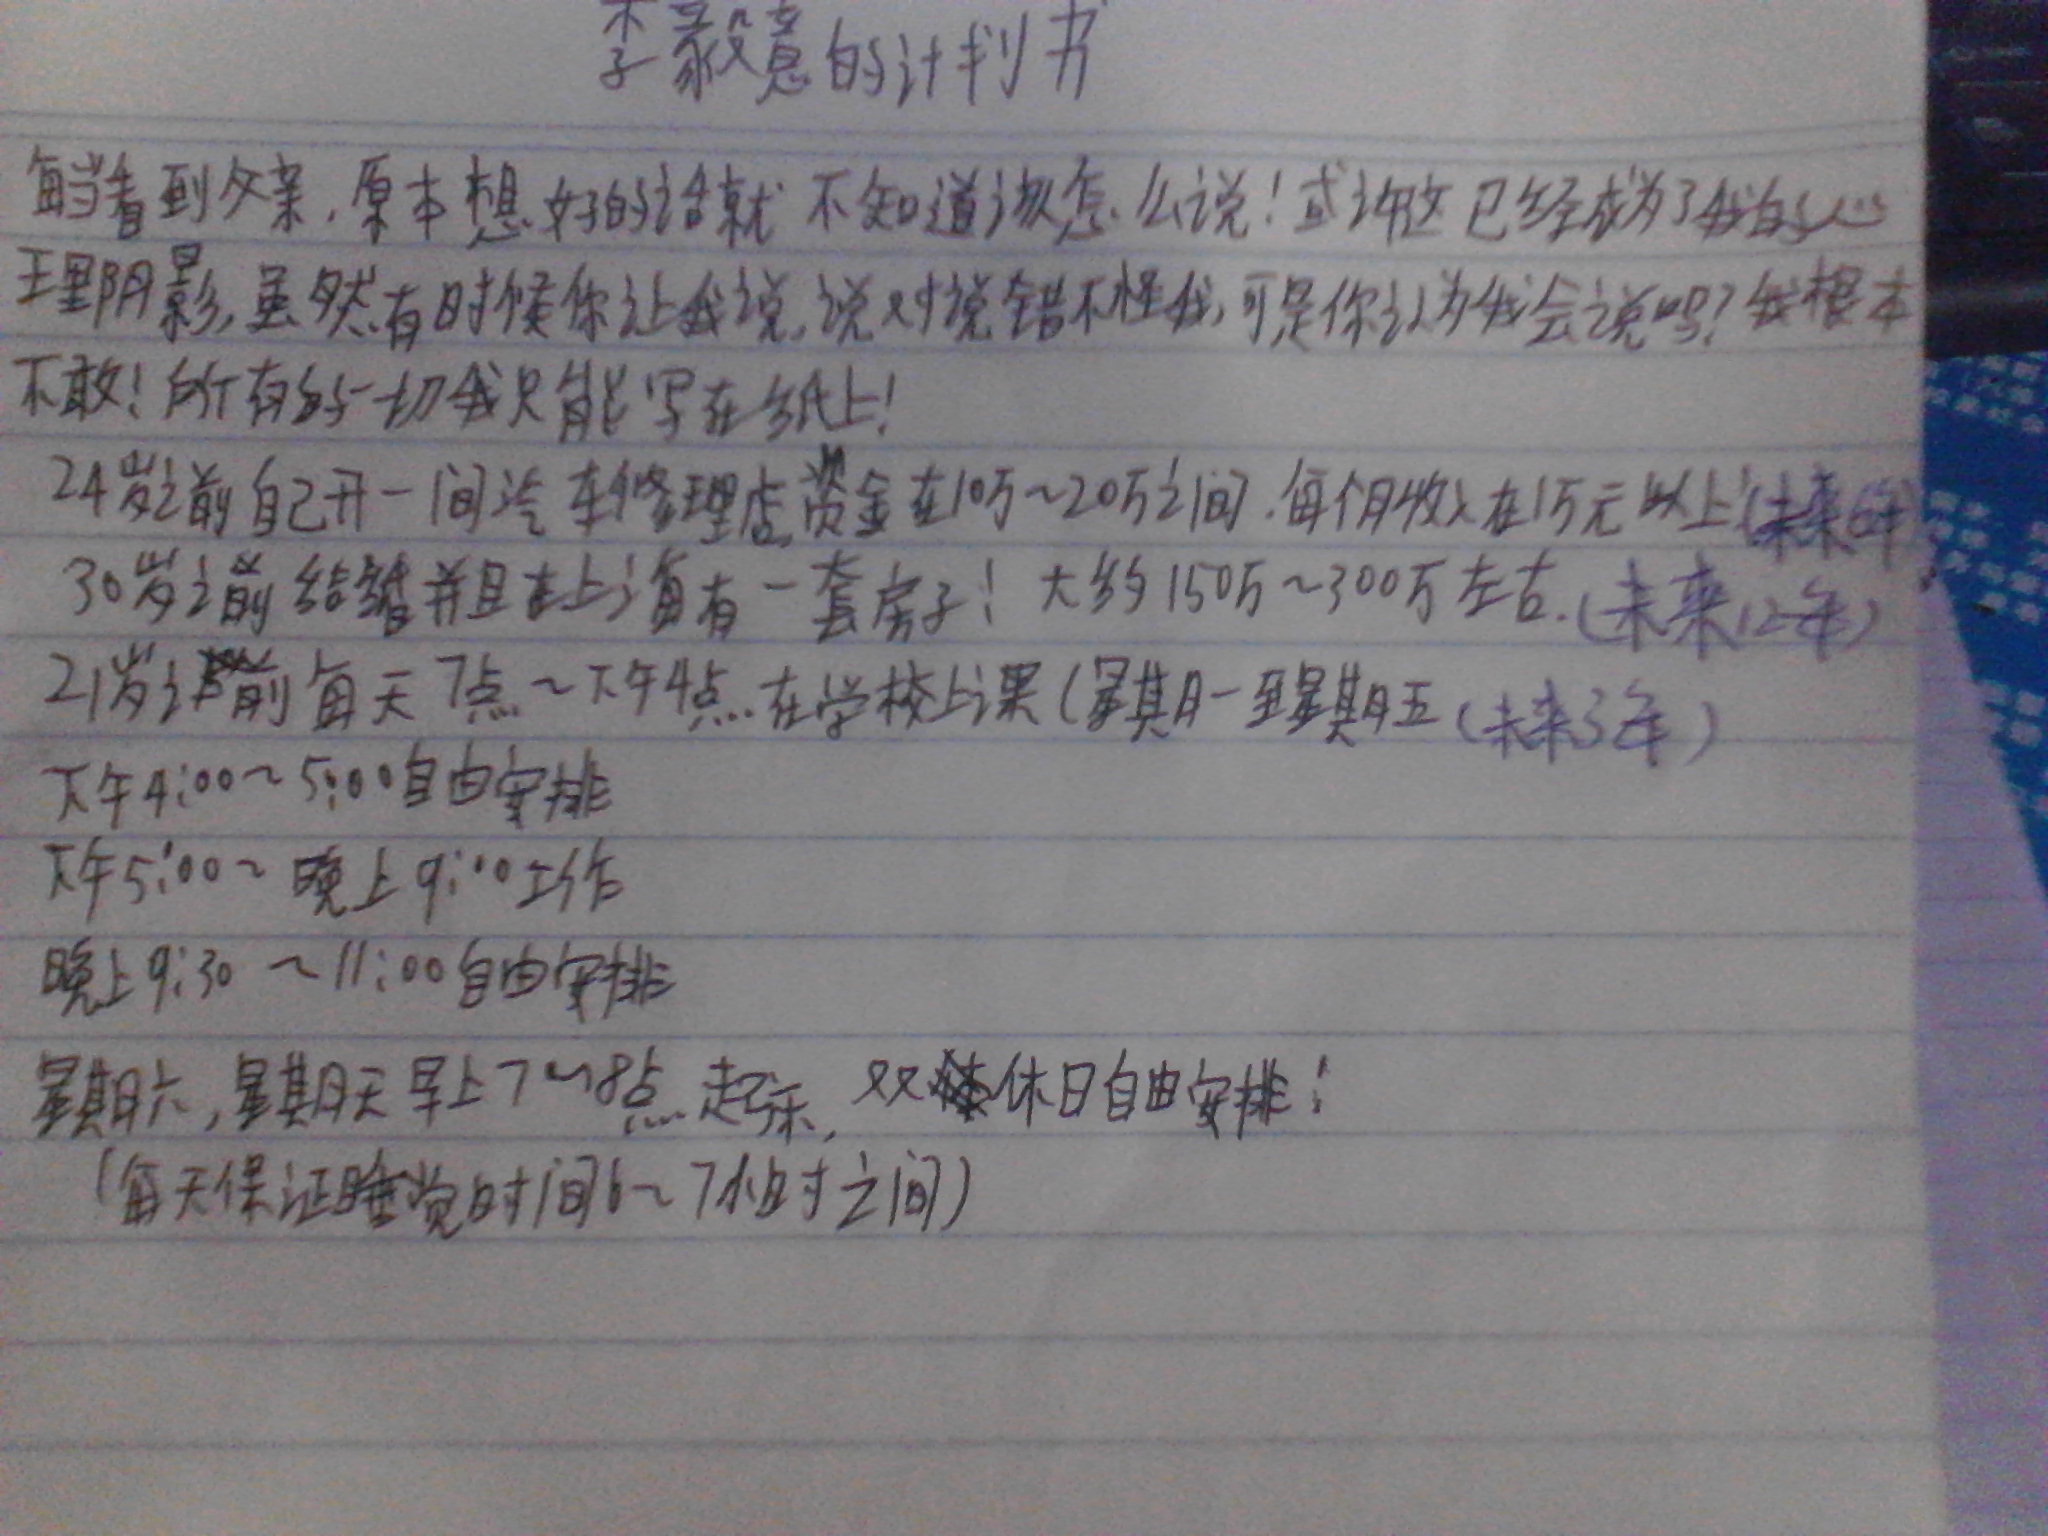 李毅意的计划书
每当看到父亲,原本想好的话就不知道该怎么说!或许这已经成为了我的心
理阴影,虽然有时候你让我说,说对说错不怪我,可是你认为我会说吗?我根本
不敢!所有的一切我只能写在纸上!
24岁之前自己开一间汽车修理店,资金在10万~20万之间.每个月收入在1万元以上(未来6年)
30岁之前结婚并且在上海有一套房子!大约150万~300万左右.(未来12年)
21岁之前每天7点~下午4点在学校上课(星期一至星期五(未来3年)
下午4:00~5:00自由安排
下午5:00~晚上9:00工作
晚上9:30~11:00自由安排
星期六,星期天早上7~8点起床,双休日自由安排!
(每天保证睡觉时间6~7小时之间)